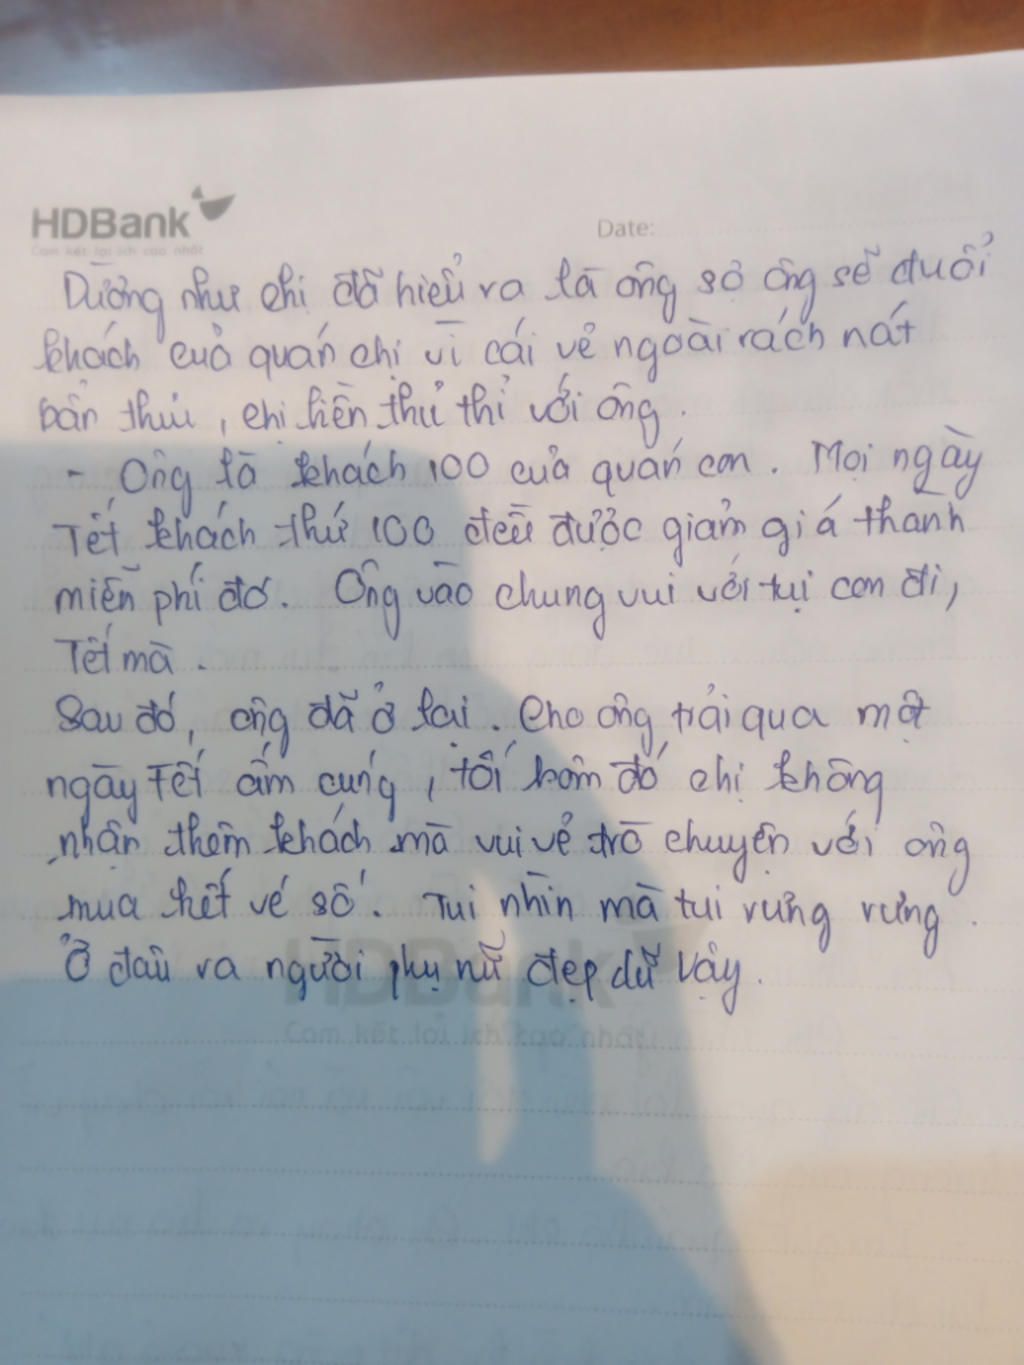 HDBank
Cam kết lợi ích cao nhất
Date:
Dường như chị đã hiểu ra là ông sợ ông sẽ đuổi
khách của quán chị vì cái vẻ ngoài rách nát
bẩn thỉu, chị liền thủ thỉ với ông.
- Ông là khách 100 của quán con. Mọi ngày
Tết khách thứ 100 đều được giảm giá thành
miễn phí đó. Ông vào chung vui với tụi con đi,
Tết mà.
Sau đó, ông đã ở lại. Cho ông trải qua một
ngày Tết ấm cúng, tối hôm đó chị không
nhận thêm khách mà vui vẻ trò chuyện với ông
mua hết vé số. Tui nhìn mà tui rưng rưng.
Ở đâu ra người phụ nữ đẹp dữ vậy.
HDBank
Cam kết lợi ích cao nhất